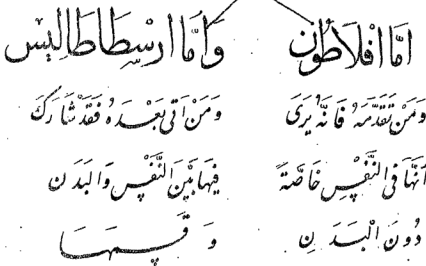 اَمَّا اَفْلَاطُونُ
وَمَنْ تَقَدَّمَهُ فَاِنَّهُ يَرَى
اَنَّهَا فِى النَّفْسِ خَاصَّةً
دُونَ الْبَدَنِ
وَاَمَّا ارِسْطَاطَالِيْس
وَمَنْ اَتَى بَعْدَهُ فَقَدْ شَارَكَ
فِيهَا بَيْنَ النَّفْسِ وَالْبَدَنِ
وَقَسَمَهَا